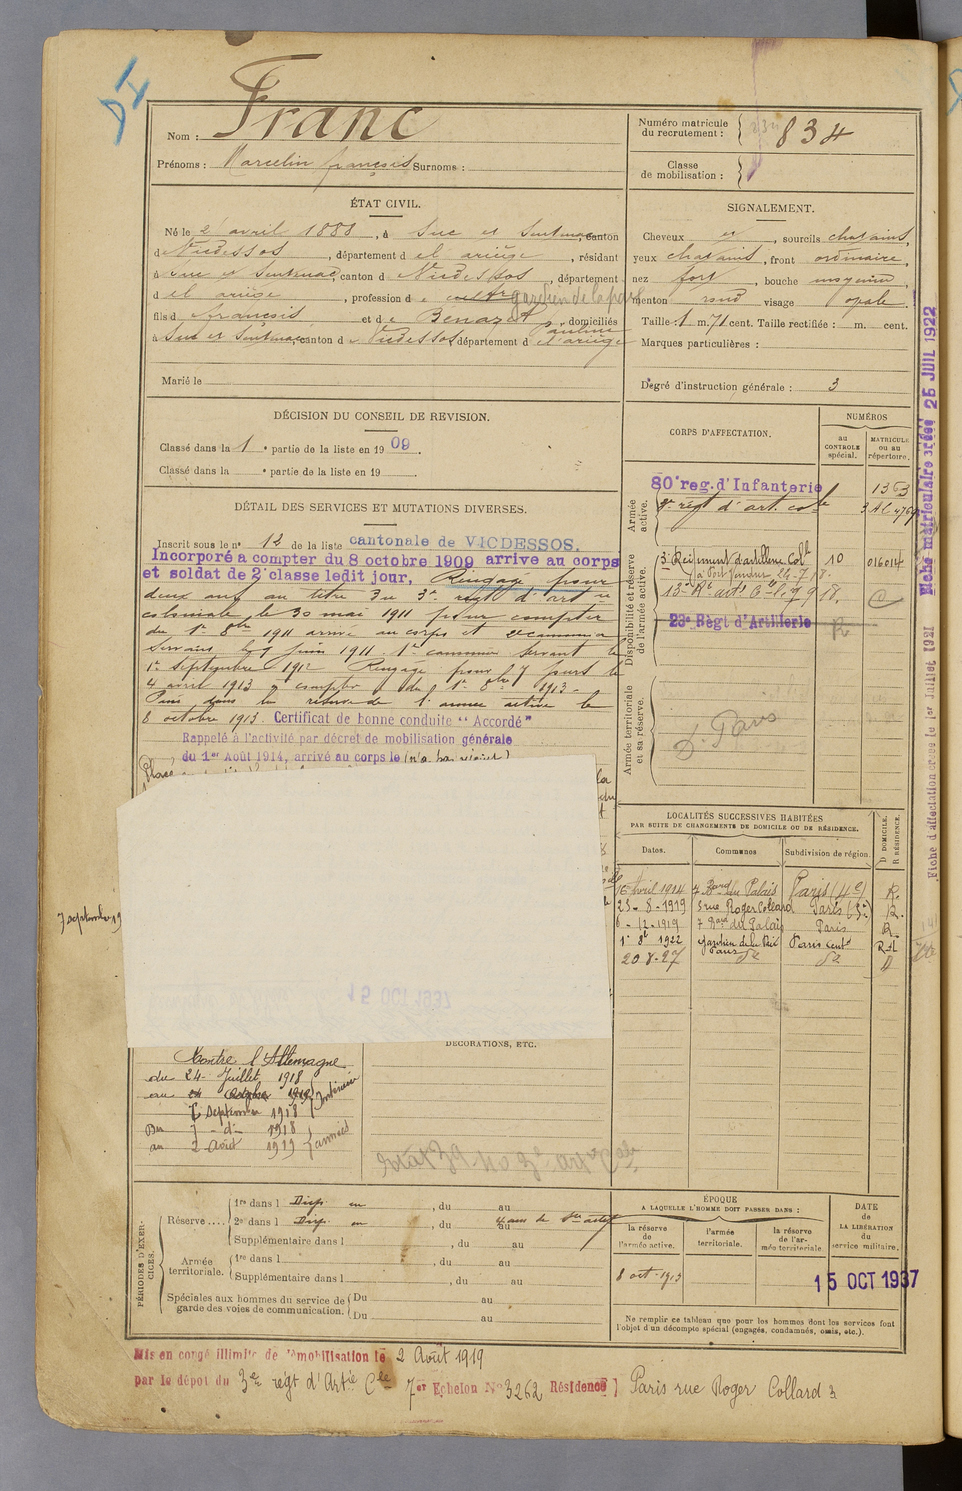 Franc
Nom :
Prénoms : Marcelin françois Surnoms :
Numéro matricule
du recrutement : 834
Classe
de mobilisation :
ÉTAT CIVIL.
Né le 2 avril 1888, à Suc et Sentenac, canton
de Vicdessos, département de l'ariège, résidant
à Suc et Sentenac, canton de Vicdessos, département
d el ariège, profession de gardien de la paix
fils de françois et de Benazet pauline, domiciliés
à Suc et Sentenac, canton de Vicdessos département de l'ariège
Marié le
SIGNALEMENT.
Cheveux et, sourcils chatains,
yeux chatains, front ordinaire,
nez fort, bouche moyenne,
menton rond visage ovale
Taille : 1 m. 71 cent. Taille rectifiée : m. cent.
Marques particulières :
Degré d'instruction générale : 3
DÉCISION DU CONSEIL DE REVISION.
Classé dans la 1e partie de la liste en 1909.
Classé dans la e partie de la liste en 19
DÉTAIL DES SERVICES ET MUTATIONS DIVERSES.
Inscrit sous le n° 12 de la liste cantonale de VICDESSOS.
Incorporé à compter du 8 octobre 1909 arrive au corps
et soldat de 2e classe ledit jour, Rengagé pour
deux ans au titre du 3e régt d'artie
coloniale le 30 mai 1911 pour compter
du 1er 8bre 1911 arrivé au corps et 2e canonnier
servant le 7 juin 1911. 1er canonnier servant le
1er Septembre 1912 Rengagé pour 7 jours le
4 avril 1913 à compter du 1er 8bre 1913.
Passé dans la réserve de l'armée active le
8 octobre 1913. Certificat de bonne conduite "Accordé"
Rappelé à l'activité par décret de mobilisation générale
du 1er Août 1914, arrivé au corps le (n'a pas rejoint)
7 septembre 19
CORPS D'AFFECTATION.
NUMÉROS
au
CONTROLE
spécial.
MATRICULE
ou au
répertoire.
Armée
active.
80e reg. d'Infanterie 1363
3e régt d'art. cole
Disponibilité et réserve
de l'armée active.
3e Régiment d'artillerie Cole 10 016014
13e Rt arte Cle
23e Régt d'Artillerie R
Armée territoriale
et sa réserve.
D. Paris
Fiche matriculaire créée 25 JUIL 1922
Fiche d'affectation créée le 1er Juillet 1921
LOCALITÉS SUCCESSIVES HABITÉES
PAR SUITE DE CHANGEMENTS DE DOMICILE OU DE RÉSIDENCE.
Dates. Communes Subdivision de région. D DOMICILE. R RÉSIDENCE.
16 Avril 1914 7 Bard du Palais Paris (4e) R.
23-8-1919 3 rue Roger Collard Paris (5e) R.
6-12-1919 7 Bard du Palais Paris R.
1er 8t 1922 Gardien de la Paix Paris Paris Cent
20-8-27 do do D
15 OCT 1937
DÉCORATIONS, ETC.
Contre l'Allemagne
du 24 Juillet 1918
au 24 octobre 1919
6 Septembre 1918 Intérieur
Du 7 - d° - 1918
au 2 Août 1919 armées
PÉRIODES D'EXER-
CICES.
Réserve....
1re dans l Disp. en, du au
2e dans l Disp. en, du au
Supplémentaire dans l, du au
Armée
territoriale.
1re dans l, du au
Supplémentaire dans l, du au
Spéciales aux hommes du service de
garde des voies de communication.
Du au
Du au
ÉPOQUE
A LAQUELLE L'HOMME DOIT PASSER DANS :
la réserve
de
l'armée active.
l'armée
territoriale.
la réserve
de l'ar-
mée territoriale.
DATE
de
LA LIBÉRATION
du
service militaire.
8 oct. 1913
15 OCT 1937
Ne remplir ce tableau que pour les hommes dont les services font
l'objet d'un décompte spécial (engagés, condamnés, omis, etc.).
Mis en congé illimité de démobilisation le 2 Août 1919
par le dépot du 3e régt d'Artie Cle 7er Echelon N° 3262 Résidence Paris rue Roger Collard 3